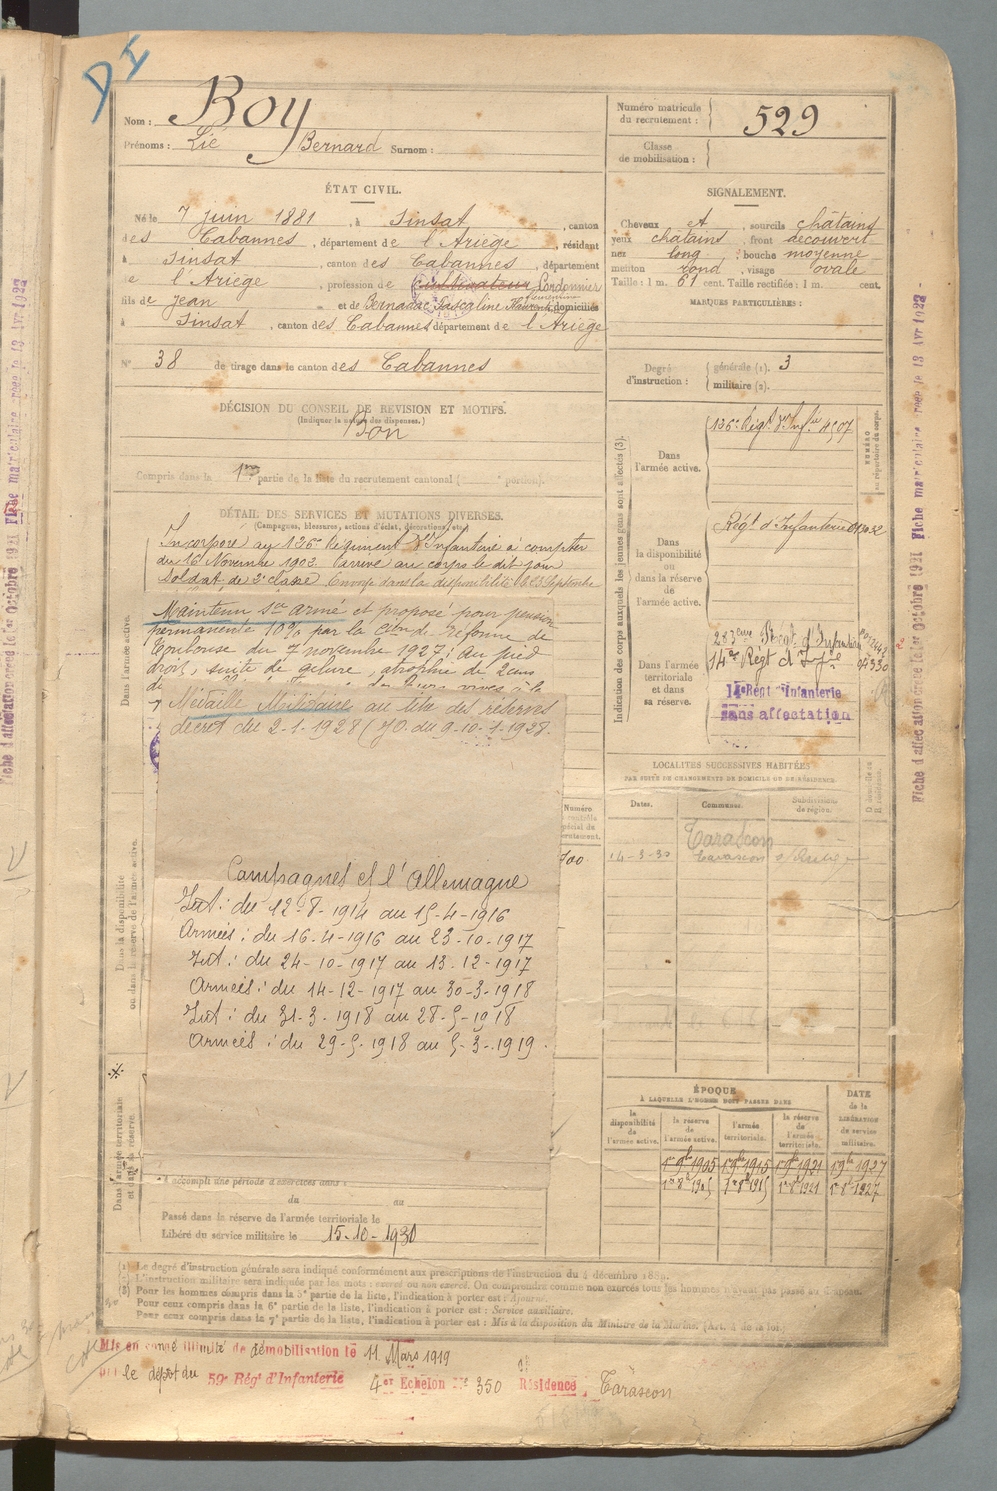 DI
Nom : Boy
Prénoms : Lié Bernard Surnom :
Numéro matricule du recrutement : 529
Classe de mobilisation :
ÉTAT CIVIL.
Né le 7 juin 1881, à Sinsat, canton
des Cabannes, département de l'Ariège, résidant
à Sinsat, canton des Cabannes, département
de l'Ariège, profession de cultivateur Cordonnier
fils de Jean et de Bernadac Pascaline Laurentine domiciliés
à Sinsat, canton des Cabannes département de l'Ariège
N° 38 de tirage dans le canton des Cabannes
SIGNALEMENT.
Cheveux et, sourcils châtains
yeux châtains, front découvert
nez long, bouche moyenne
menton rond, visage ovale
Taille : 1 m. 61 cent. Taille rectifiée : 1 m. cent.
MARQUES PARTICULIÈRES :
Degré d'instruction : générale (1). 3
militaire (2).
DÉCISION DU CONSEIL DE REVISION ET MOTIFS.
(Indiquer la nature des dispenses.)
Bon
Compris dans la 1re partie de la liste du recrutement cantonal ( portion).
DÉTAIL DES SERVICES ET MUTATIONS DIVERSES.
(Campagnes, blessures, actions d'éclat, décorations, etc.)
Incorporé au 126e Régiment d'Infanterie à compter
du 16 Novembre 1902. Arrivé au corps le dit jour
Soldat de 2e classe. Envoyé dans la disponibilité le 23 Septembre
Maintenu Sce armé et proposé pour pension
permanente 10% par la Cion de Réforme de
Toulouse du 7 novembre 1927 : Au pied
droit, suite de gelure, atrophie de 2 cms
Médaille Militaire au titre des réserves
décret du 2-1-1928 (JO. du 9-10-1-1928.
Campagnes c/ l'Allemagne
Int : du 12-8-1914 au 15-4-1916
Armées : du 16-4-1916 au 23-10-1917
Int : du 24-10-1917 au 13-12-1917
Armées : du 14-12-1917 au 30-3-1918
Int : du 31-3-1918 au 28-5-1918
Armées : du 29-5-1918 au 5-3-1919.
A accompli une période d'exercices dans
du au
Passé dans la réserve de l'armée territoriale le
Libéré du service militaire le 15-10-1930
Dans l'armée active.
Dans la disponibilité ou dans la réserve de l'armée active.
Dans l'armée territoriale et dans sa réserve.
Indication des corps auxquels les jeunes gens sont affectés (3).
NUMÉRO au répertoire du corps.
Dans l'armée active.
126e Régt d'Infrie 4507
Dans la disponibilité ou dans la réserve de l'armée active.
Régt d'Infanterie
Dans l'armée territoriale et dans sa réserve.
283eme Régt d'Infanterie
14e Régt d'Infie
14e Régt d'Infanterie
sans affectation
LOCALITÉS SUCCESSIVES HABITÉES
PAR SUITE DE CHANGEMENTS DE DOMICILE OU DE RÉSIDENCE.
Dates. Communes. Subdivision de région. D. domicile ou R. résidence.
Tarascon
14-3-30 Tarascon s/Ariège
ÉPOQUE
À LAQUELLE L'HOMME DOIT PASSER DANS
la disponibilité de l'armée active. la réserve de l'armée active. l'armée territoriale. la réserve de l'armée territoriale.
DATE de la LIBÉRATION du service militaire.
1er 9bre 1905 1er 9bre 1915 1er 9bre 1921 1er 9bre 1927
1er 8bre 1905 1er 8bre 1915 1er 8bre 1921 1er 8bre 1927
(1) Le degré d'instruction générale sera indiqué conformément aux prescriptions de l'instruction du 4 décembre 1889.
(2) L'instruction militaire sera indiquée par les mots : exercé ou non exercé. On comprendra comme non exercés tous les hommes n'ayant pas passé au drapeau.
(3) Pour les hommes compris dans la 5e partie de la liste, l'indication à porter est : Ajourné.
Pour ceux compris dans la 6e partie de la liste, l'indication à porter est : Service auxiliaire.
Pour ceux compris dans la 7e partie de la liste, l'indication à porter est : Mis à la disposition du Ministre de la Marine. (Art. 4 de la loi.)
Mis en congé illimité de démobilisation le 11 Mars 1919
par le dépôt du 59e Régt d'Infanterie 4er Echelon No 350 Résidence Tarascon
Fiche d'affectation créée le 1er Octobre 1921 Fiche matriculaire créée le 13 Avr 1922